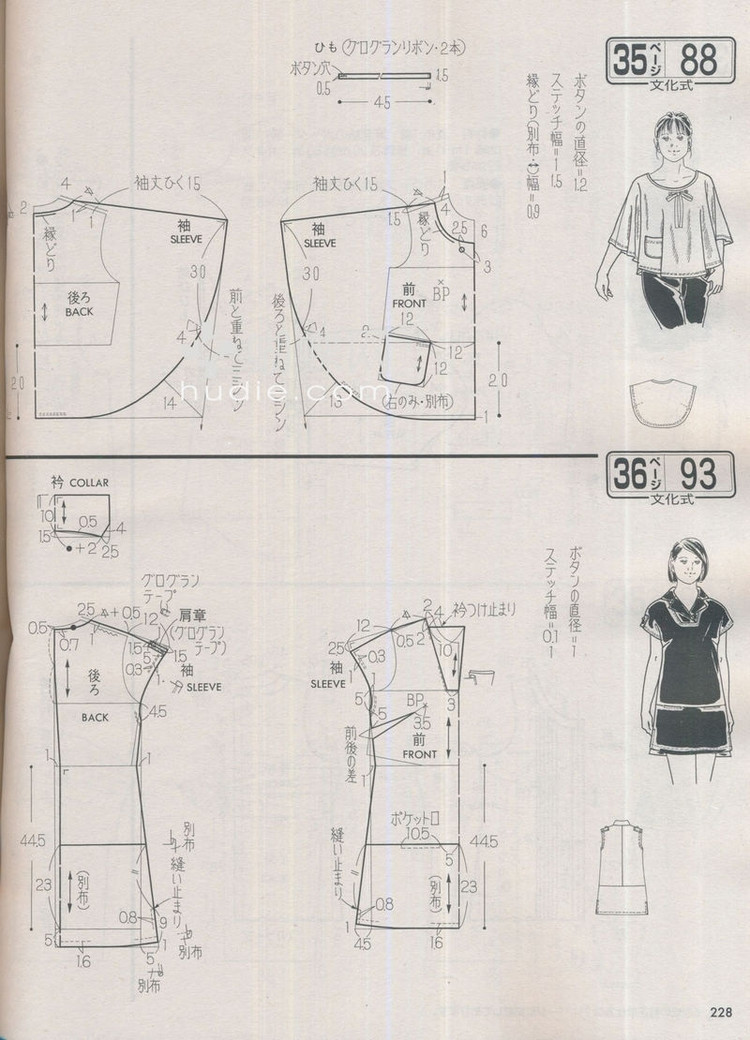 35ページ 88
文化式
ボタンの直径=1.2
ステッチ幅=1 1.5
縁どり(別布・幅=0.9
ひも(グログランリボン・2本)
ボタン穴
0.5
1.5
45
4
袖丈ひく15
2
1
1
縁どり
袖
SLEEVE
後ろ
BACK
30
前と重ねてミシン
4
20
14
袖丈ひく15
1
4
1.5
縁どり
2.5
6
3
袖
SLEEVE
前
FRONT
BP
30
後ろと重ねてミシン
4
12
2
12
12
20
13
(右のみ・別布)
1
hudie.com
36ページ 93
文化式
ボタンの直径=1
ステッチ幅=0.1 1
衿 COLLAR
10
0.5
4
1.5
+2
2.5
グログラン
テープ
肩章
(グログラン
テープ)
0.5
2.5
+0.5
12
1
0.7
1.5
5
0.3
1.5
1
袖
SLEEVE
後ろ
BACK
4.5
1
1
44.5
別布
縫い止まり
23
(別布)
0.8
9
5
1.6
5
1
別布
別布
2
4
衿つけ止まり
12
0.5
2
2.5
0.3
10
袖
SLEEVE
1
5
5
BP
3.5
3
前
FRONT
前後の差
1
1
ポケット口
10.5
5
44.5
縫い止まり
(別布)
23
0.8
4.5
1.6
228